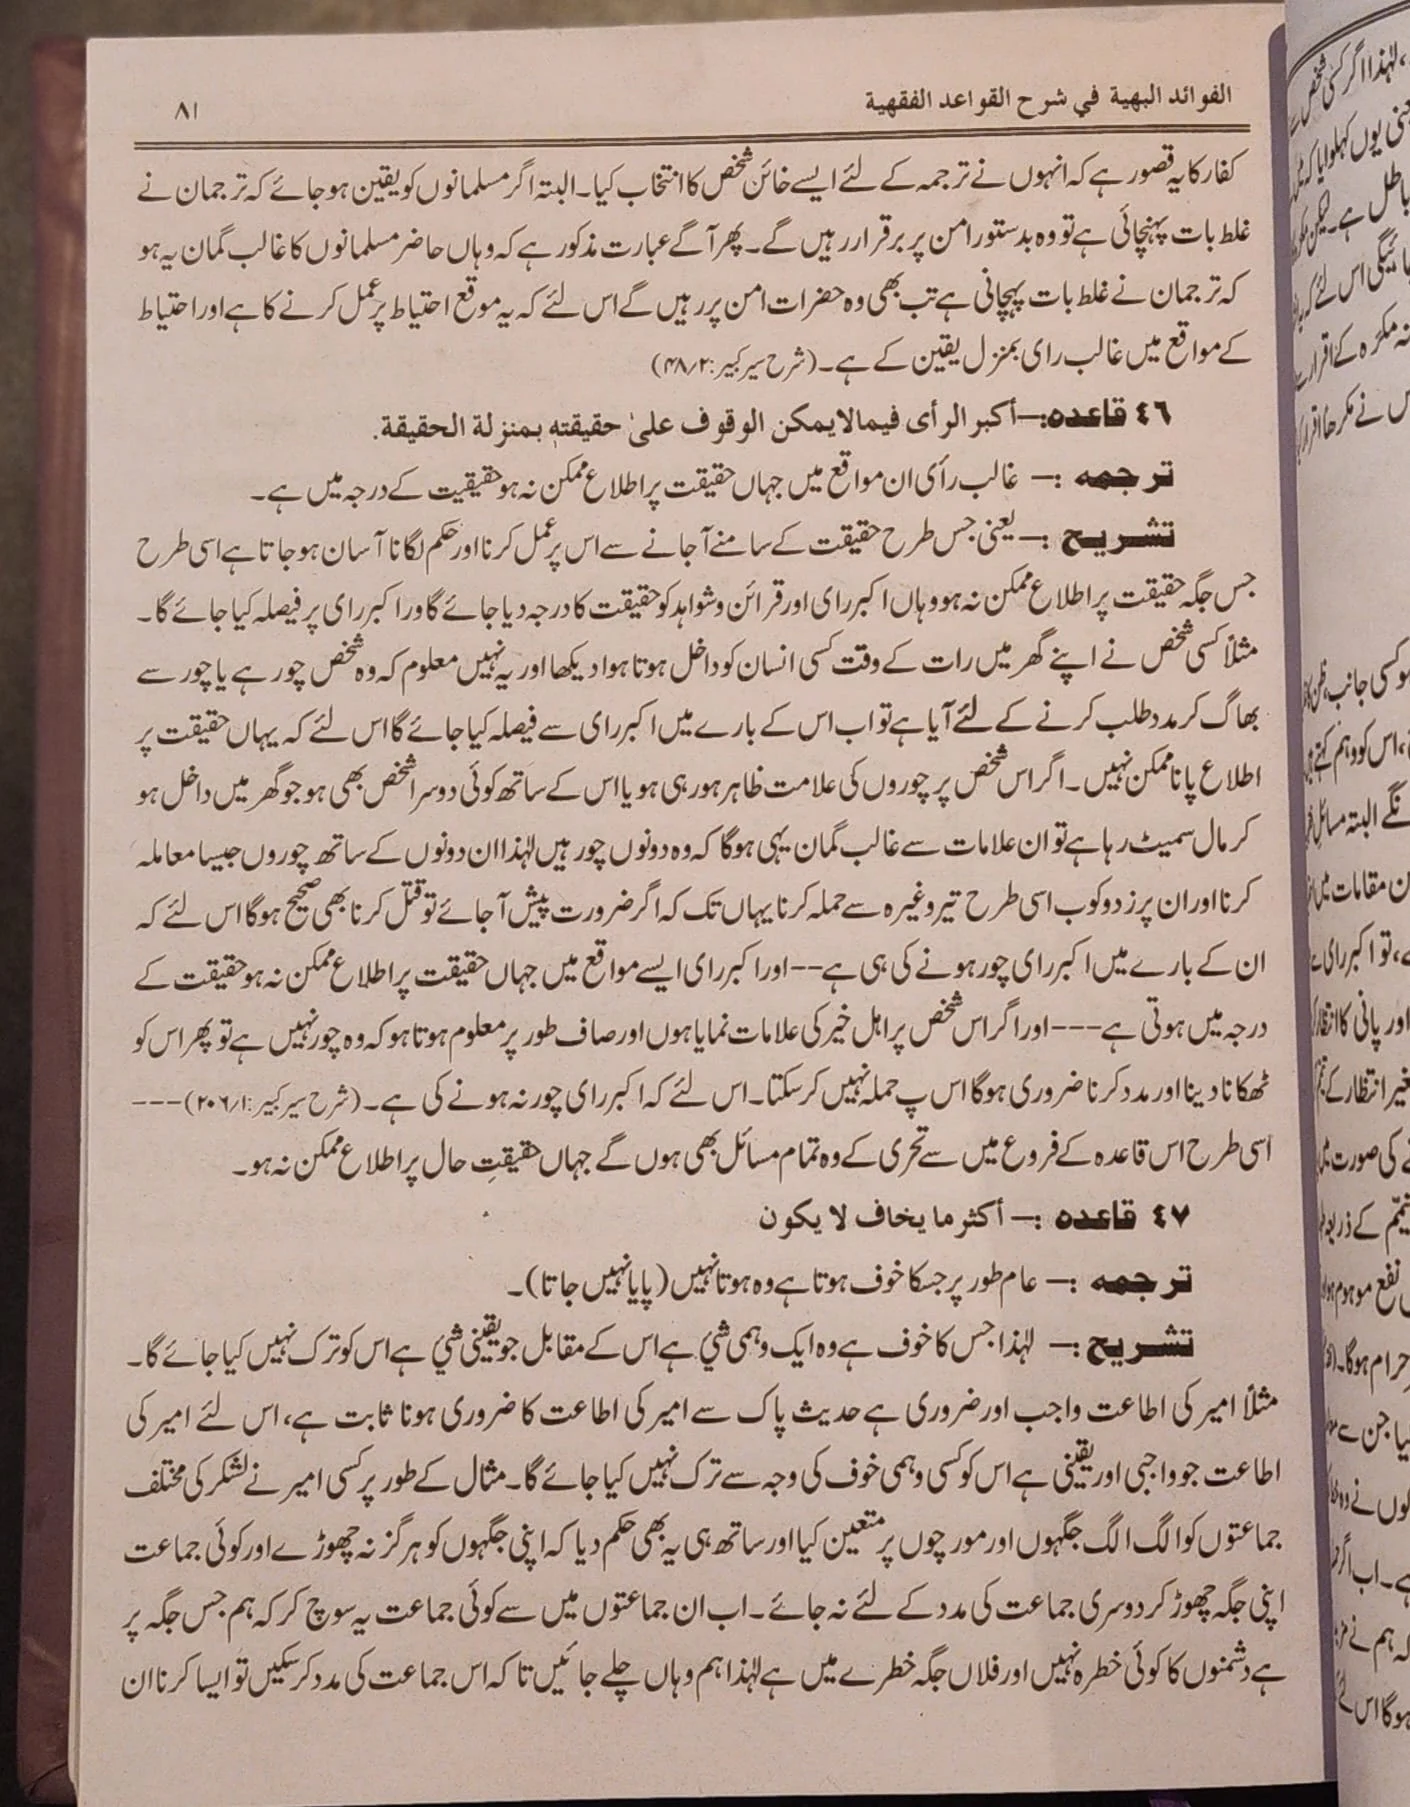 الفوائد البهية في شرح القواعد الفقهية ۸۱
کفار کا یہ قصور ہے کہ انہوں نے ترجمہ کے لئے ایسے خائن شخص کا انتخاب کیا۔ البتہ اگر مسلمانوں کو یقین ہو جائے کہ ترجمان نے
غلط بات پہنچائی ہے تو وہ بدستور امن پر برقرار رہیں گے۔ پھر آگے عبارت مذکور ہے کہ وہاں حاضر مسلمانوں کا غالب گمان یہ ہو
کہ ترجمان نے غلط بات پہچانی ہے تب بھی وہ حضرات امن پر رہیں گے اس لئے کہ یہ موقع احتیاط پر عمل کرنے کا ہے اور احتیاط
کے مواقع میں غالب رای بمنزل یقین کے ہے۔ (شرح سیر کبیر: ۲/۴۸)
٤٦ قاعده:— أكبر الرأى فيما لا يمكن الوقوف علىٰ حقيقتهٖ بمنزلة الحقيقة.
ترجمه :— غالب رأی ان مواقع میں جہاں حقیقت پر اطلاع ممکن نہ ہو حقیقیت کے درجہ میں ہے۔
تشریح :— یعنی جس طرح حقیقت کے سامنے آجانے سے اس پر عمل کرنا اور حکم لگانا آسان ہو جاتا ہے اسی طرح
جس جگہ حقیقت پر اطلاع ممکن نہ ہو وہاں اکبر رای اور قرائن وشواہد کو حقیقت کا درجہ دیا جائے گا ور اکبر رای پر فیصلہ کیا جائے گا۔
مثلاً کسی شخص نے اپنے گھر میں رات کے وقت کسی انسان کو داخل ہوتا ہوا دیکھا اور یہ نہیں معلوم کہ وہ شخص چور ہے یا چور سے
بھاگ کر مدد طلب کرنے کے لئے آیا ہے تو اب اس کے بارے میں اکبر رای سے فیصلہ کیا جائے گا اس لئے کہ یہاں حقیقت پر
اطلاع پانا ممکن نہیں۔ اگر اس شخص پر چوروں کی علامت ظاہر ہو رہی ہو یا اس کے ساتھ کوئی دوسرا شخص بھی ہو جو گھر میں داخل ہو
کر مال سمیٹ رہا ہے تو ان علامات سے غالب گمان یہی ہوگا کہ وہ دونوں چور ہیں لہٰذا ان دونوں کے ساتھ چوروں جیسا معاملہ
کرنا اور ان پر زد وکوب اسی طرح تیر وغیرہ سے حملہ کرنا یہاں تک کہ اگر ضرورت پیش آجائے تو قتل کرنا بھی صحیح ہوگا اس لئے کہ
ان کے بارے میں اکبر رای چور ہونے کی ہی ہے-- اور اکبر رای ایسے مواقع میں جہاں حقیقت پر اطلاع ممکن نہ ہو حقیقت کے
درجہ میں ہوتی ہے--- اور اگر اس شخص پر اہل خیر کی علامات نمایا ہوں اور صاف طور پر معلوم ہوتا ہو کہ وہ چور نہیں ہے تو پھر اس کو
ٹھکانا دینا اور مدد کرنا ضروری ہوگا اس پ حملہ نہیں کر سکتا۔ اس لئے کہ اکبر رای چور نہ ہونے کی ہے۔ (شرح سیر کبیر: ۱/۲۰۶)---
اسی طرح اس قاعدہ کے فروع میں سے تحری کے وہ تمام مسائل بھی ہوں گے جہاں حقیقتِ حال پر اطلاع ممکن نہ ہو۔
٤٧ قاعده :— أكثر ما يخاف لا يكون
ترجمه :— عام طور پر جسکا خوف ہوتا ہے وہ ہوتا نہیں (پایا نہیں جاتا)۔
تشریح :— لہٰذا جس کا خوف ہے وہ ایک وہمی شئ ہے اس کے مقابل جو یقینی شئ ہے اس کو ترک نہیں کیا جائے گا۔
مثلاً امیر کی اطاعت واجب اور ضروری ہے حدیث پاک سے امیر کی اطاعت کا ضروری ہونا ثابت ہے، اس لئے امیر کی
اطاعت جو واجبی اور یقینی ہے اس کو کسی وہمی خوف کی وجہ سے ترک نہیں کیا جائے گا۔ مثال کے طور پر کسی امیر نے لشکر کی مختلف
جماعتوں کو الگ الگ جگہوں اور مورچوں پر متعین کیا اور ساتھ ہی یہ بھی حکم دیا کہ اپنی جگہوں کو ہرگز نہ چھوڑے اور کوئی جماعت
اپنی جگہ چھوڑ کر دوسری جماعت کی مدد کے لئے نہ جائے۔ اب ان جماعتوں میں سے کوئی جماعت یہ سوچ کر کہ ہم جس جگہ پر
ہے دشمنوں کا کوئی خطرہ نہیں اور فلاں جگہ خطرے میں ہے لہٰذا ہم وہاں چلے جائیں تا کہ اس جماعت کی مدد کر سکیں تو ایسا کرنا ان